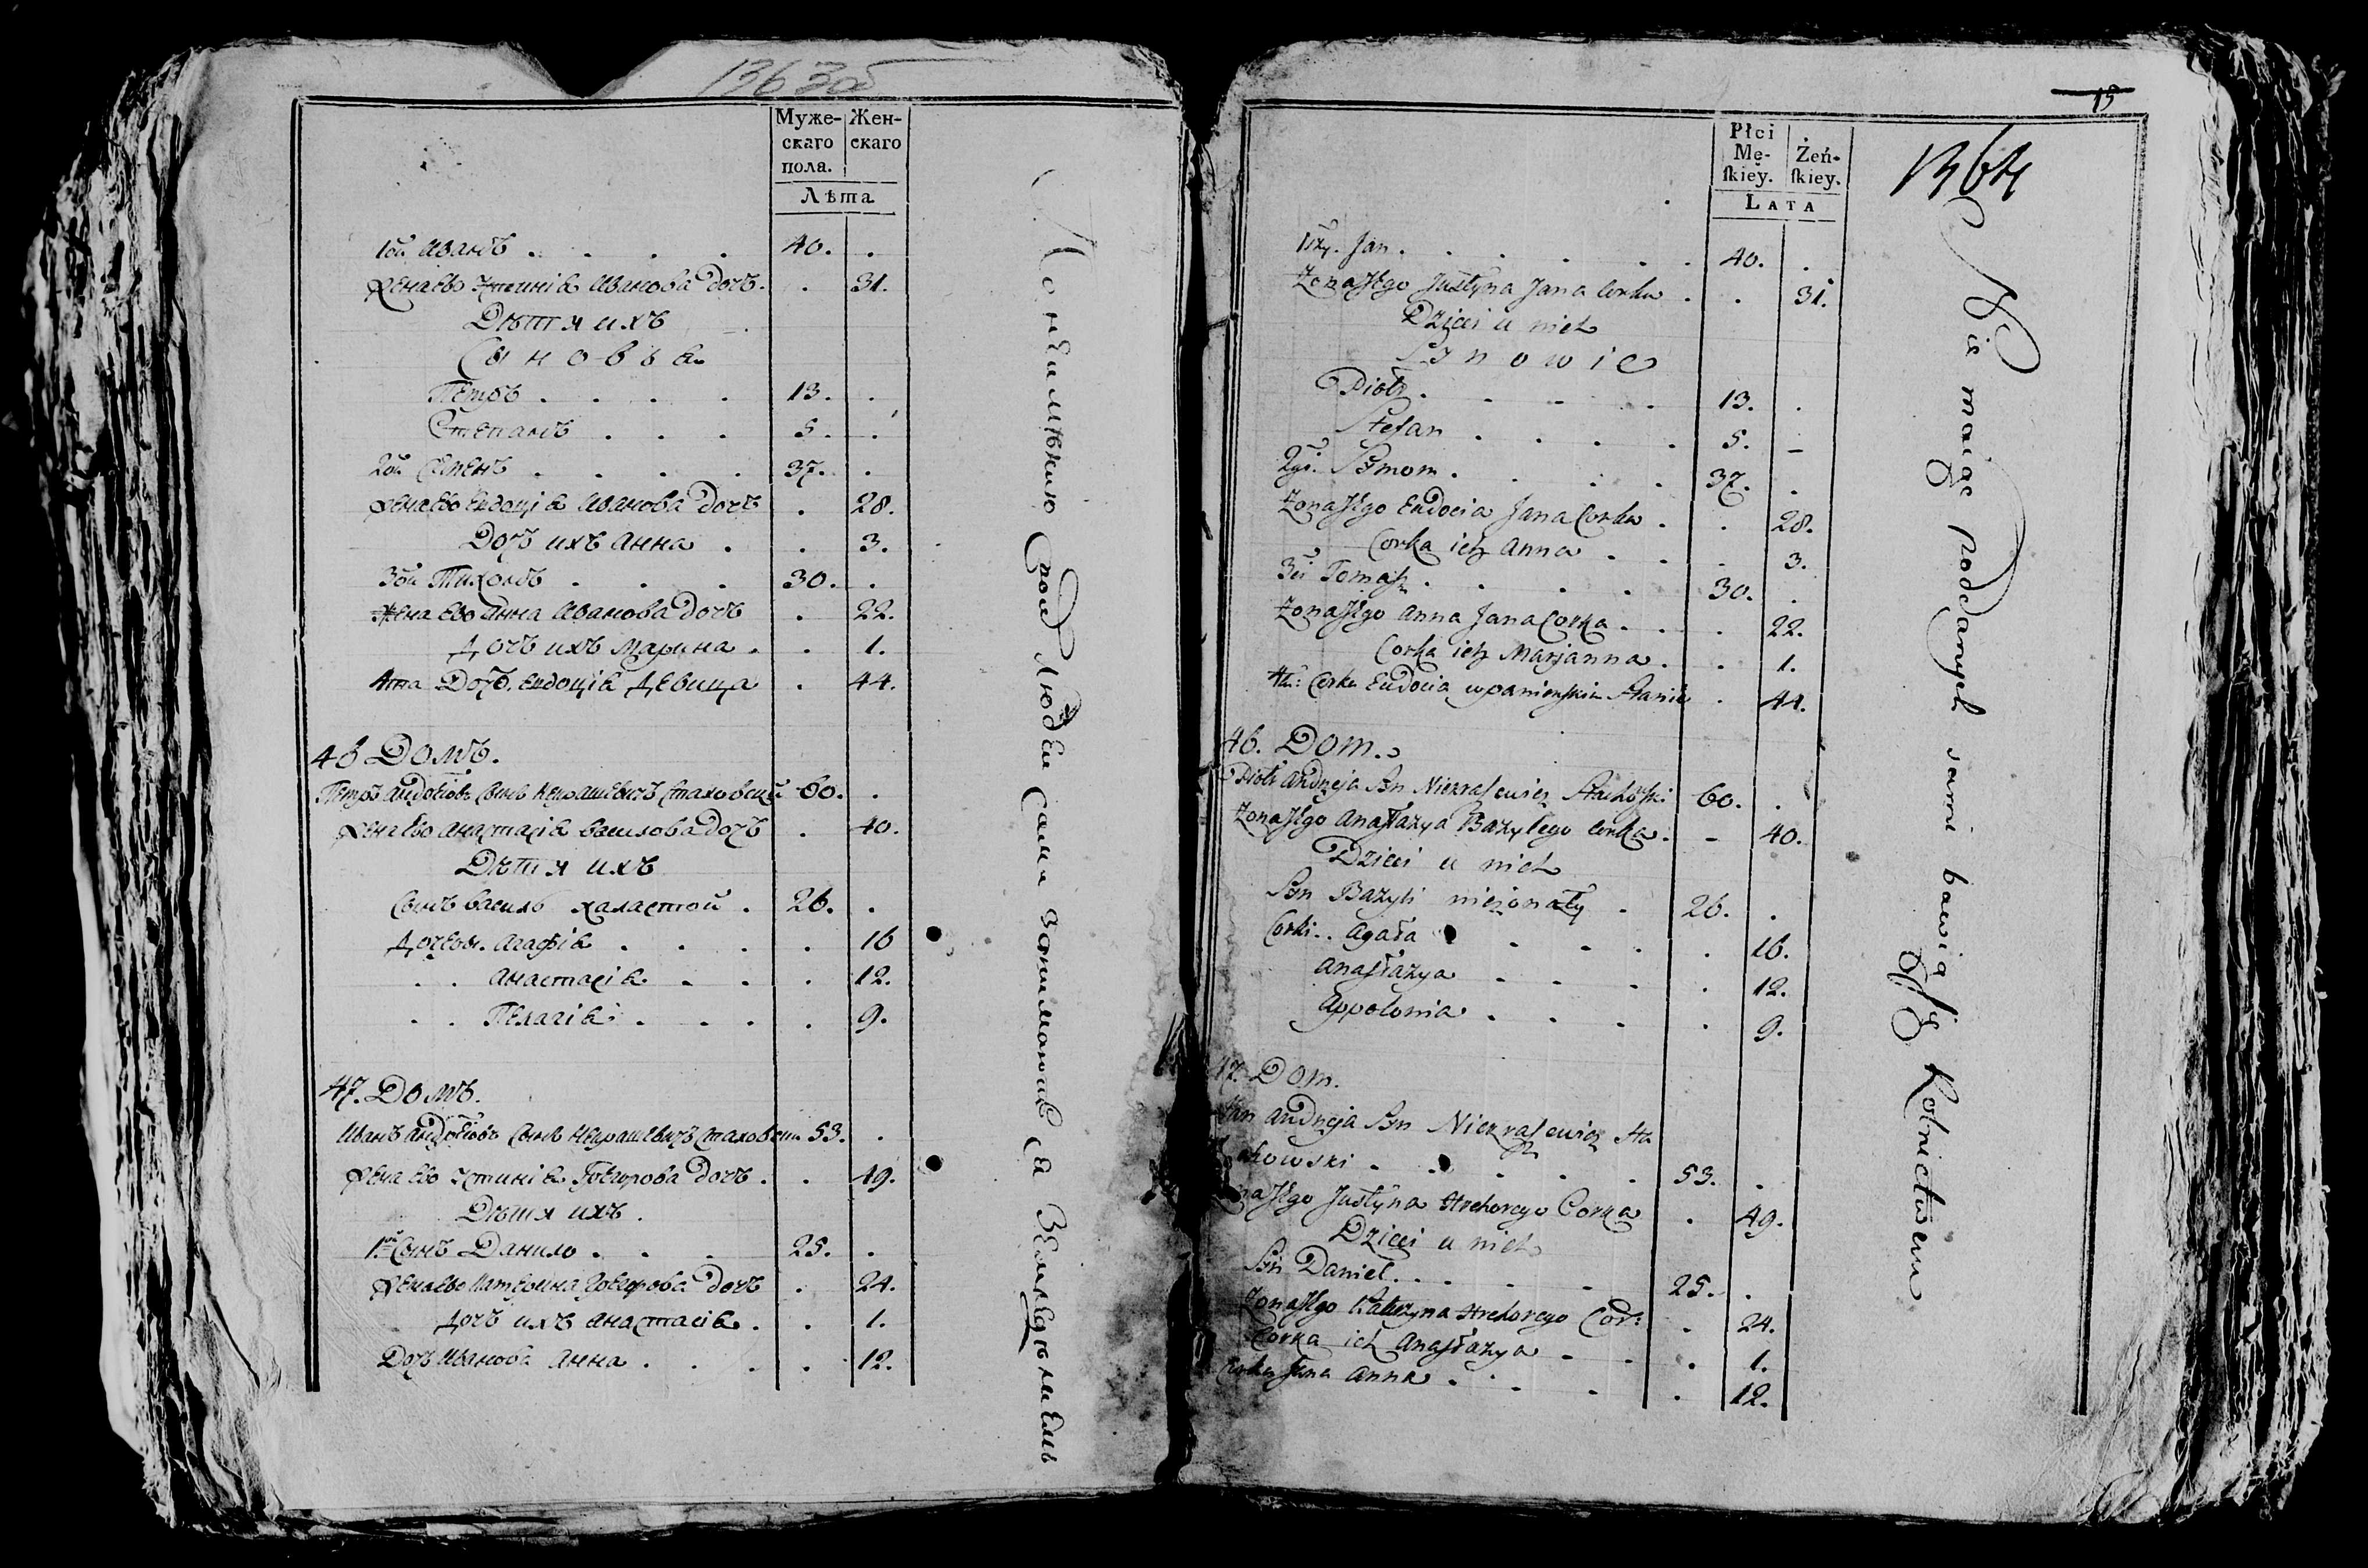 1363об
Муже- Жен-
скаго скаго
пола.
Лѣта
1ой Иванъ . . . . 40. .
Жена его Устинія Иванова дочь . . 31.
Дѣти ихъ
Сыновья
Петръ . . . . 13. .
Степанъ . . . 5. .
2ой Семенъ . . . . 37. .
Жена его Евдоція Иванова дочь . 28.
Дочь ихъ Анна . . 3.
3ой Тихонъ . . . 30. .
Жена его Анна Иванова дочь . 22.
Дочь ихъ Марина . . 1.
4та Дочь Евдоція девица . 44.
46 Домъ.
Петръ Андреевъ сынъ Некрашевичъ Стаховский 60. .
Жена его Анастасія Василова дочь . 40.
Дѣти ихъ
Сынъ Василь халастой . 26. .
Дочеры. Агафія . . . . 16
. . Анастасія . . . 12.
. . Пелагія . . . . 9.
47. Домъ.
Иванъ Андреевъ сынъ Некрашевичъ Стаховски 53. .
Жена его Устинія Грегорова дочь . . 49.
Дѣти ихъ.
1й Сынъ Данило . . . 25. .
Жена его Катерина Грегорова дочь . 24.
Дочь ихъ Анастасія . . 1.
Дочь Иванова Анна . . . . 12.
По неимѣнию своих людей сами занимаются земледелиемъ
15
1364
Płci
Mę- Żeń-
ſkiey. ſkiey.
LATA
1szy. Jan . . . . . . 40. .
Żona Jego Justyna Jana Corka . . 31.
Dzieci u nich
Synowie
Piotr . . . . . 13. .
Stefan . . . . 5. –
2gi. Symon . . . . 37. .
Żona Jego Eudocia Jana Corka . . 28.
Corka ich Anna . . . 3.
3ci Tomasz . . . . . 30. .
Żona Jego Anna Jana Corka . . . 22.
Corka ich Marjanna . . 1.
4ta: Corka Eudocia w panienskim Stanie . 44.
46. Dom.
Piotr Andrzeja Syn Niekrasewicz Stachowski 60. .
Żona Jego Anastazya Bazylego Corka . – 40.
Dzieci u nich
Syn Bazyli nieżonaty . 26. .
Corki . . Agata . . . . . 16.
Anastazya . . . . . 12.
Appolonia . . . . . 9.
47. Dom.
Jan Andrzeja Syn Niekrasewicz Sta
chowski . . . . . 53. .
Żona Jego Justyna Hrehorego Corka . 49.
Dzieci u nich
Syn Daniel . . . . . 25. .
Żona Jego Katerzyna Hrehorego Cor: . 24.
Corka ich Anastazya . . . 1.
Corka Jana Anna . . . . . 12.
Nie maiąc poddanych sami bawią się Rolnictwem